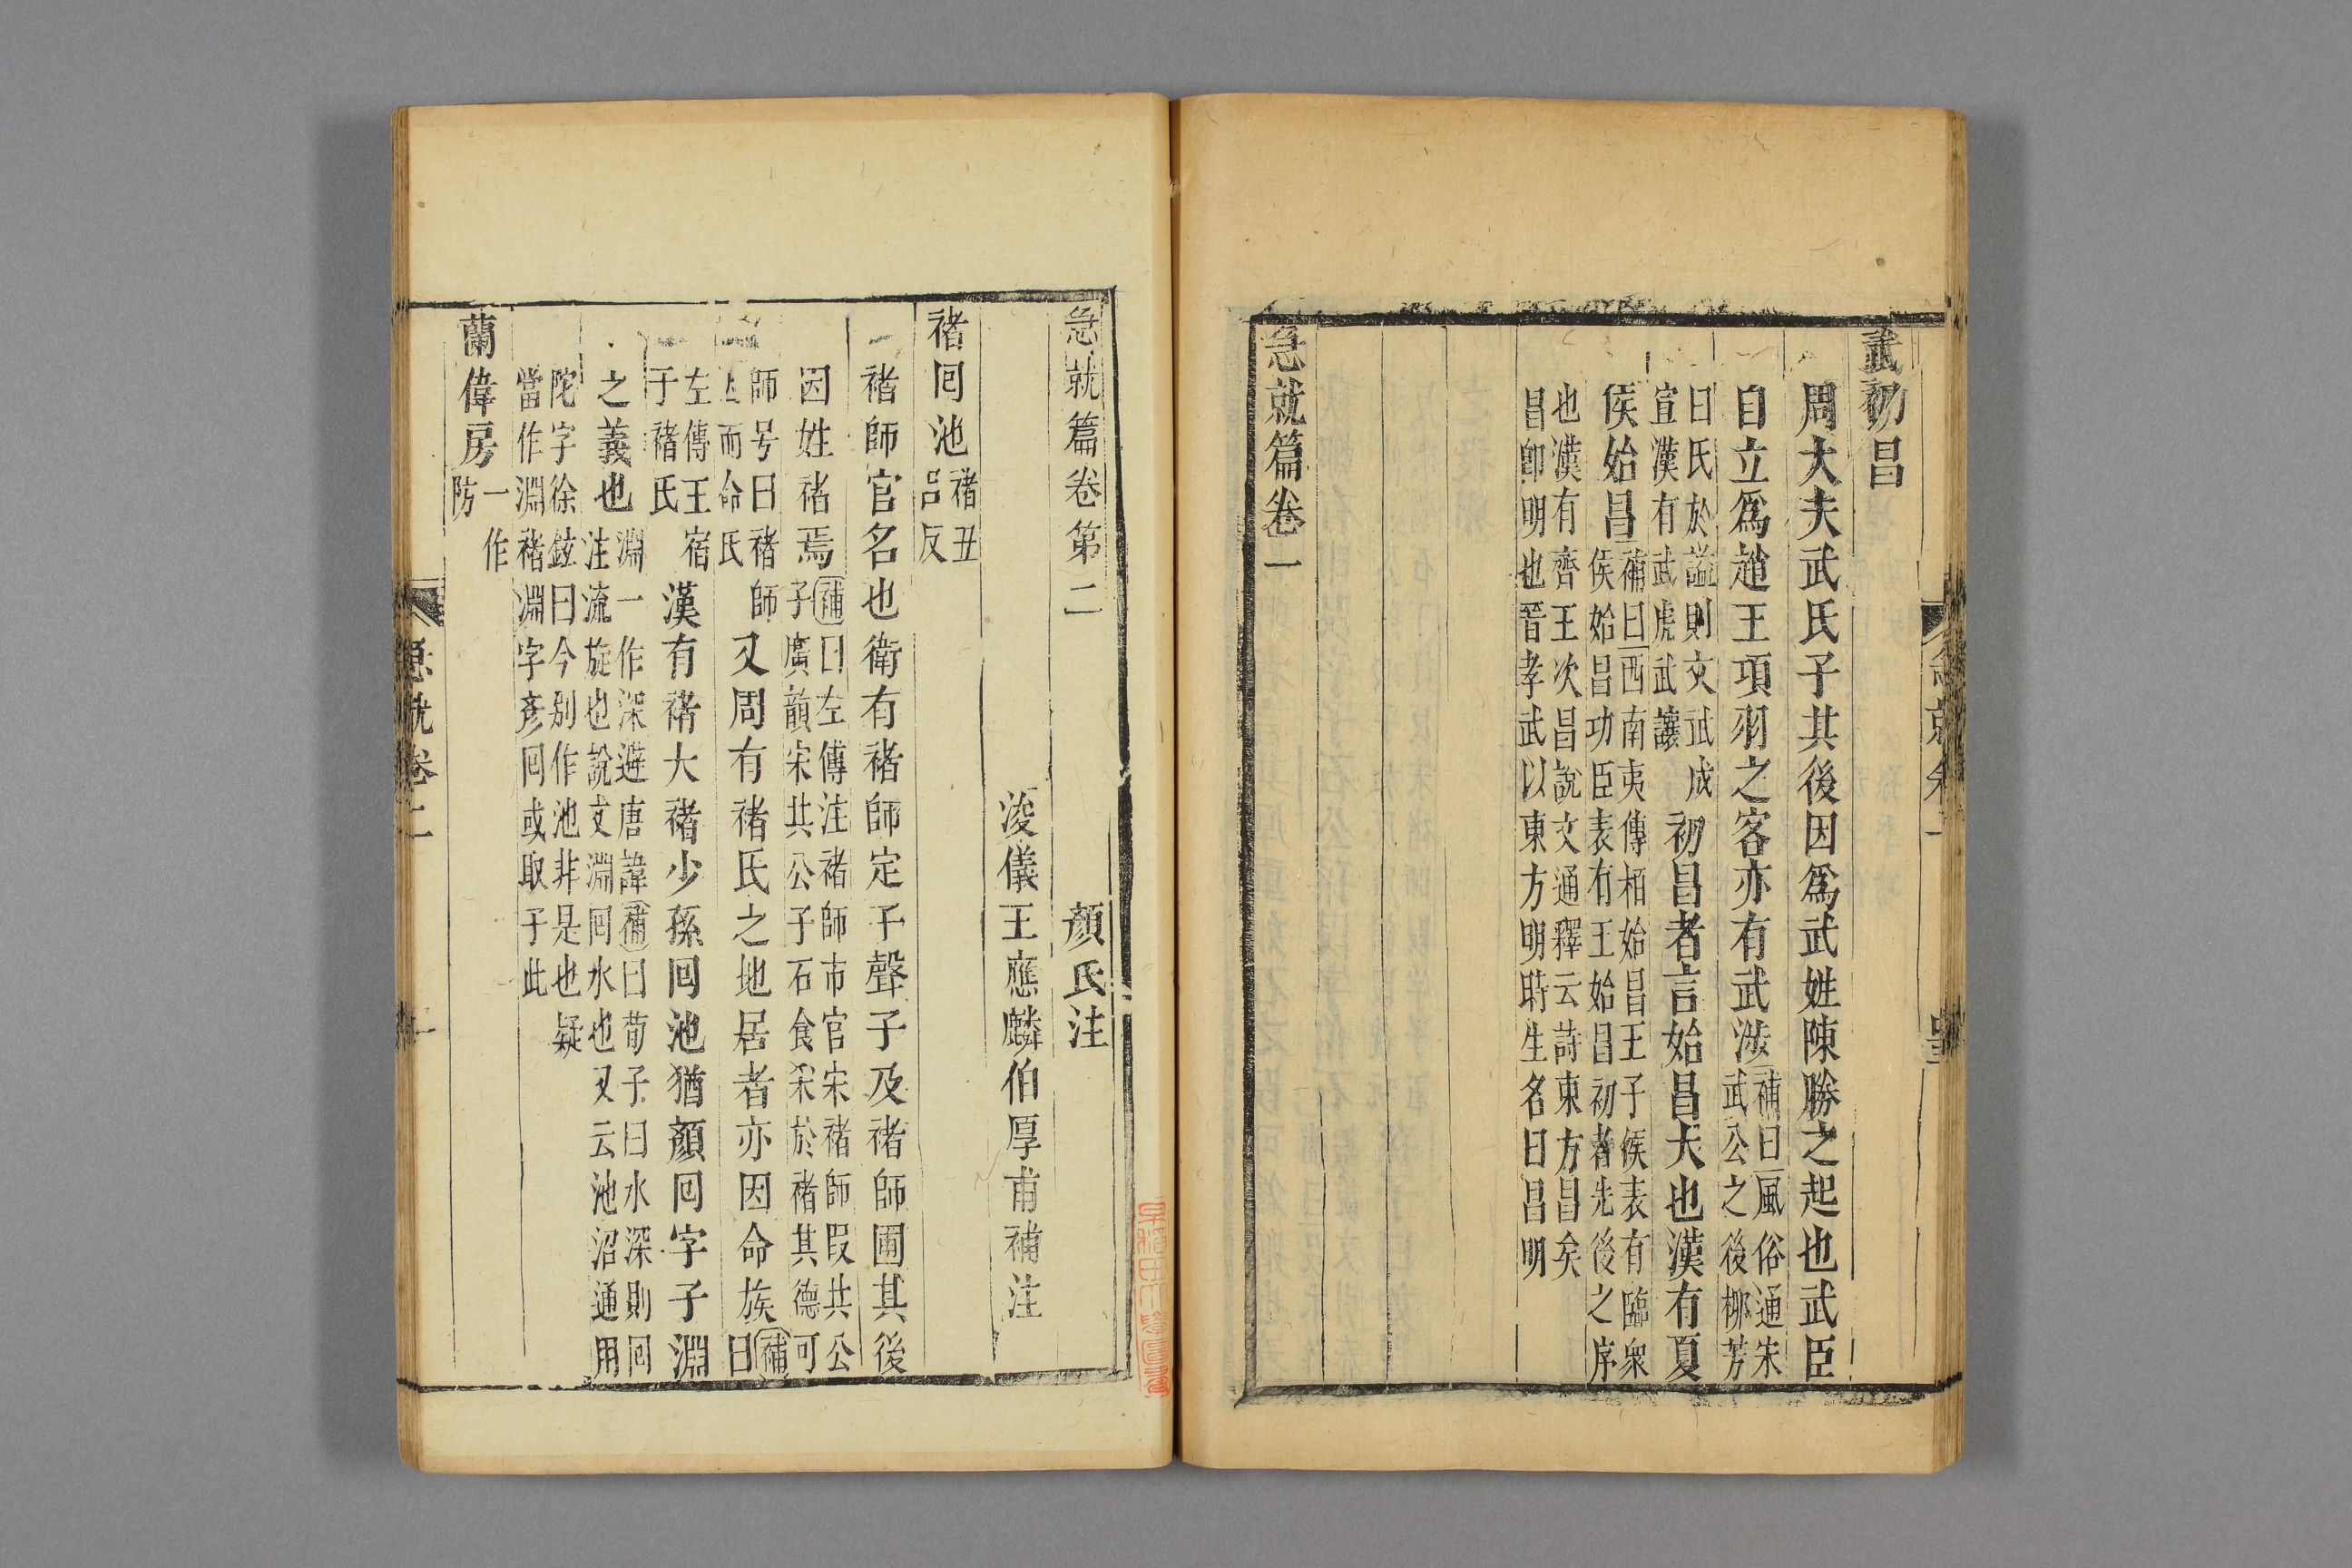 武初昌
周大夫武氏子其後因爲武姓陳勝之起也武臣
自立爲趙王項羽之客亦有武涉補曰風俗通朱
武公之後柳芳
曰氏於謚則文武成
宣漢有武虎武讓
初昌者言始昌大也漢有夏
侯始昌補曰西南夷傳栢始昌王子侯表有臨衆
侯始昌功臣表有王始昌初者先後之序
也漢有齊王次昌說文通釋云詩東方昌矣
昌卽明也晉孝武以東方明時生名曰昌明
急就篇卷一
急就篇卷第二
顏氏注
浚儀王應麟伯厚甫補注
褚回池褚丑
呂反
褚師官名也衛有褚師定子聲子及褚師圃其後
因姓褚焉補曰左傳注褚師市官宋褚師段共公
子廣韻宋共公子石食采於褚其德可
師号曰褚師
而命氏
又周有褚氏之地居者亦因命族補
曰
左傳王宿
于褚氏
漢有褚大褚少孫回池猶顏回字子淵
之義也淵一作深避唐諱補曰荀子曰水深則回
注流旋也說文淵回水也又云池沼通用
陀字徐鉉曰今别作池非是也疑
當作淵褚淵字彥回或取于此
蘭偉房一作
防
急就卷二